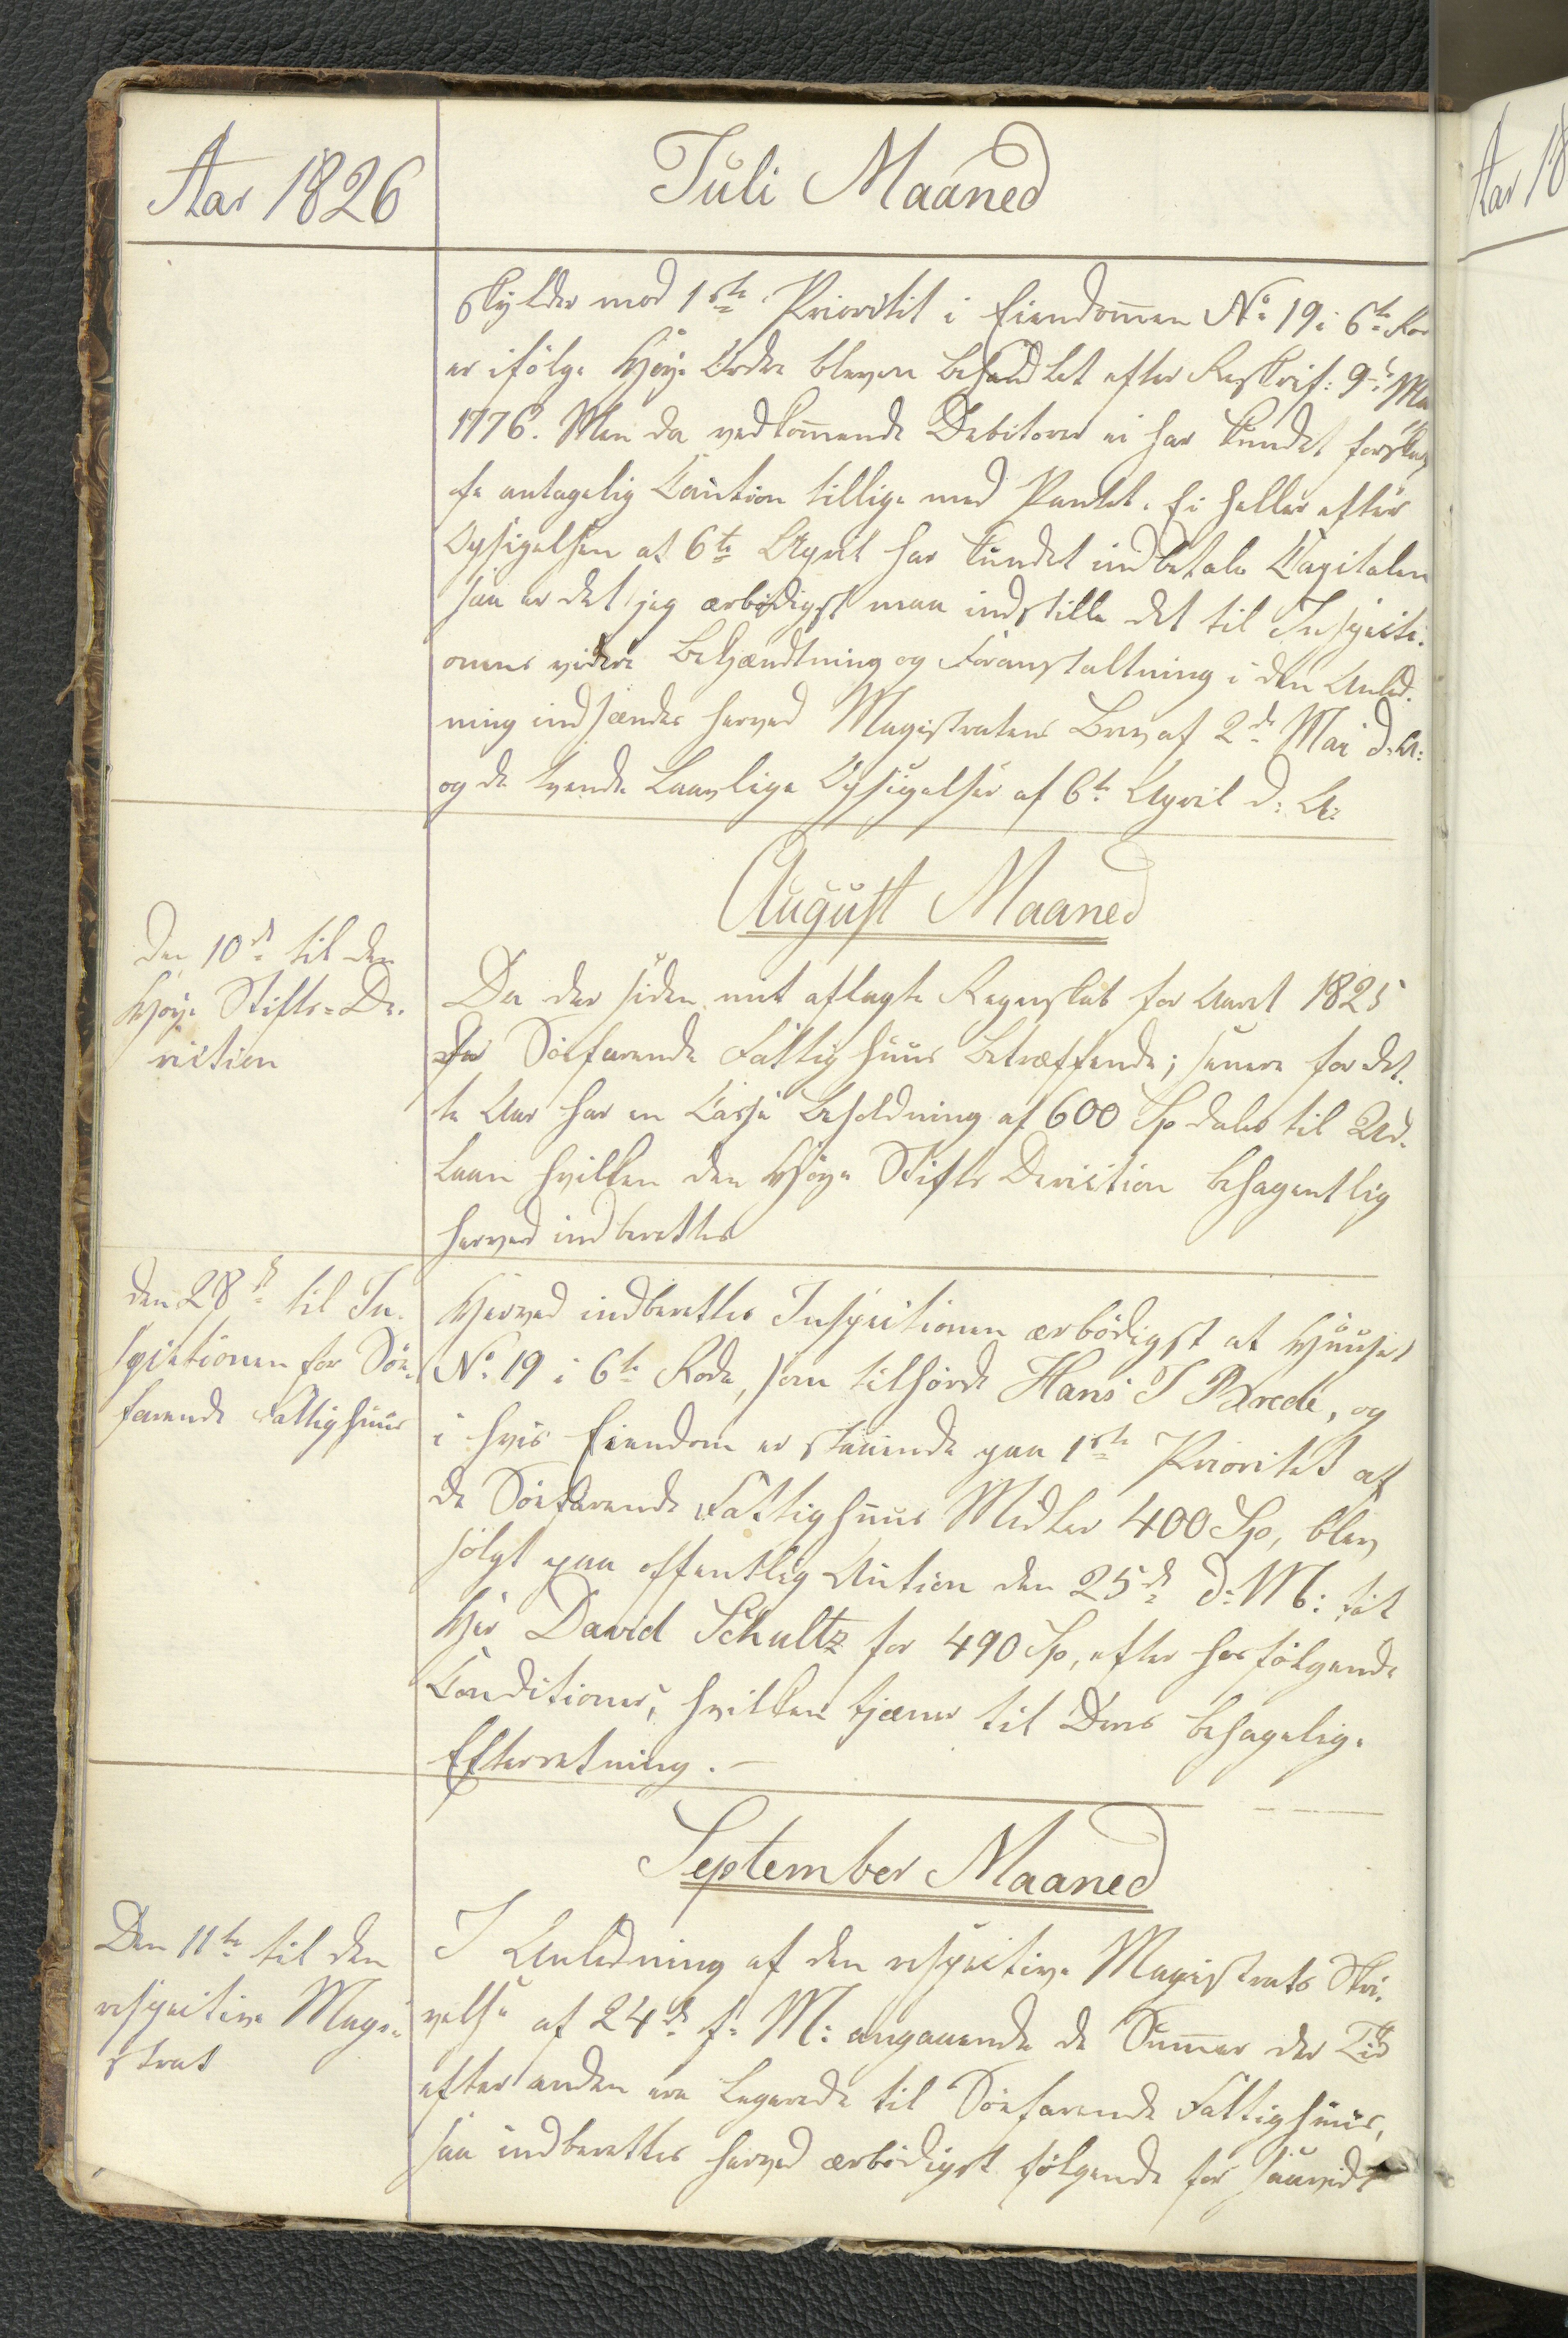 Aar 1826
Juli Maaned
skylder mod 1ste Prioritet i Eiendommen No 19 i 6te Ro
er ifölge Höye Ordre bleven behandlet efter Reskript: 9de Ma
1776. Men da vedkommende Debitorer ei har kundet forskaf
fe antagelig Caution tillige med Pantet. Ei heller efter
Opsigelsen at 6te April har kundet indbetale Capitalen
saa er det jeg ærbödigst maa indstille det til Inspecti-
onens videre Behandling og Foranstaltning i den Anled-
ning indsændes herved Magistratens Brev af 2de Mai d: A:
og de tvende Laavlige Opsigelser af 6te April d: A:
August Maaned
Den 10de til den
Höye Stifts-Di-
rection
Da der siden mit aflagte Regnskab for Aaret 1825
Söefarende Fattighuus betræffende; senere for det-
te Aar har en Casse Beholdning af 600 Spdaler til Ud-
laan hvilken den Höye Stifts Direction behagentlig
herved indberettes
Den 28de til In-
spectionen for Söe-
farende Fattighuus
Herved indberettes Inspectionen ærbödigst at Huuset
No 19 i 6te Rode, som tilhörde Hans J Brede, og
i hvis Eiendom er staaende paa 1ste Prioritet af
de Söefarende Fattighuus Midler 400 Sp, blev
solgt paa offentlig Auction den 25de d: M: til
Hr David Schultz for 490 Sp, efter hosfölgende
Conditioner, hvilket tjæner til Deres behagelige
Efterretning. -
September Maaned
Den 11te til den
respective Magi-
strat
I Anledning af den respective Magistrats Skri-
velse af 24de f: M: angaaende de Summer der Tid
efter anden ere legerede til Söefarende Fattighuus,
saa indberettes herved ærbödigst fölgende for saavidt
Aar 18